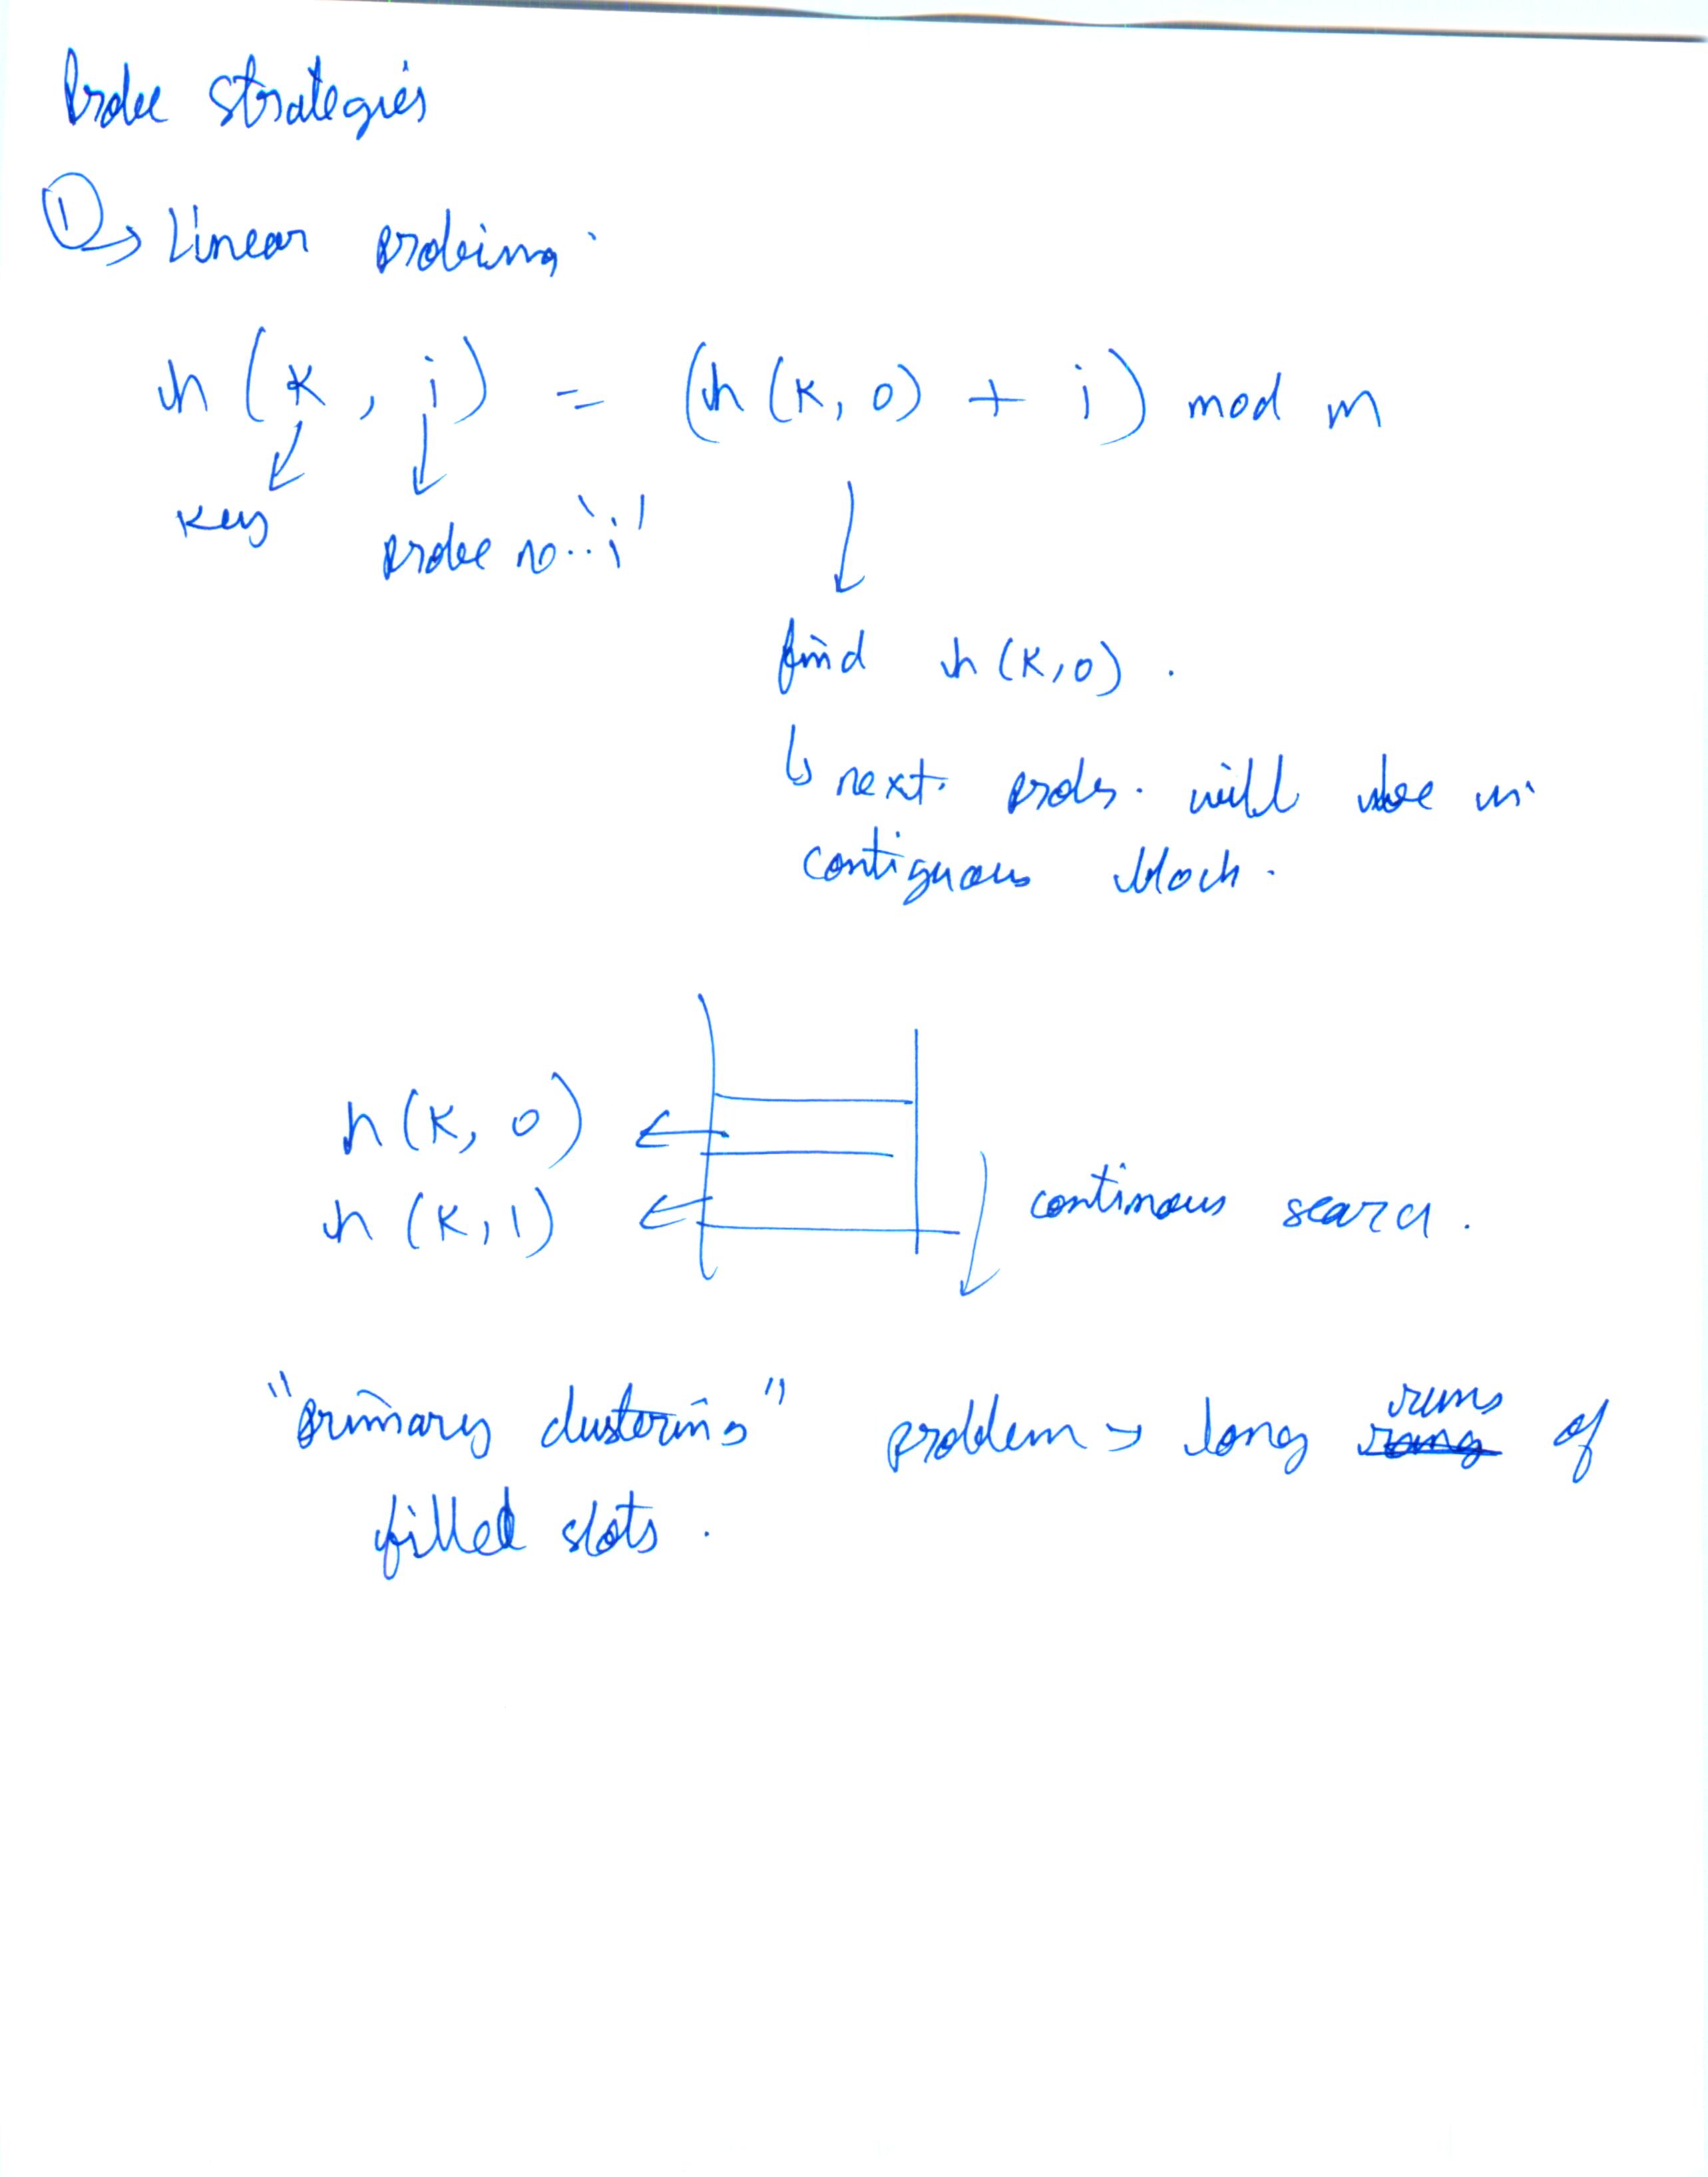 Probe strategies
① → Linear probing.
h (K, i) = (h (K, 0) + i) mod m
key
probe no. 'i'
find h (K, 0).
↳ next. probe. will be in
contiguous block.
h (K, 0)
h (K, 1)
continous search.
"primary clustering" problem → long runs of
filled slots.